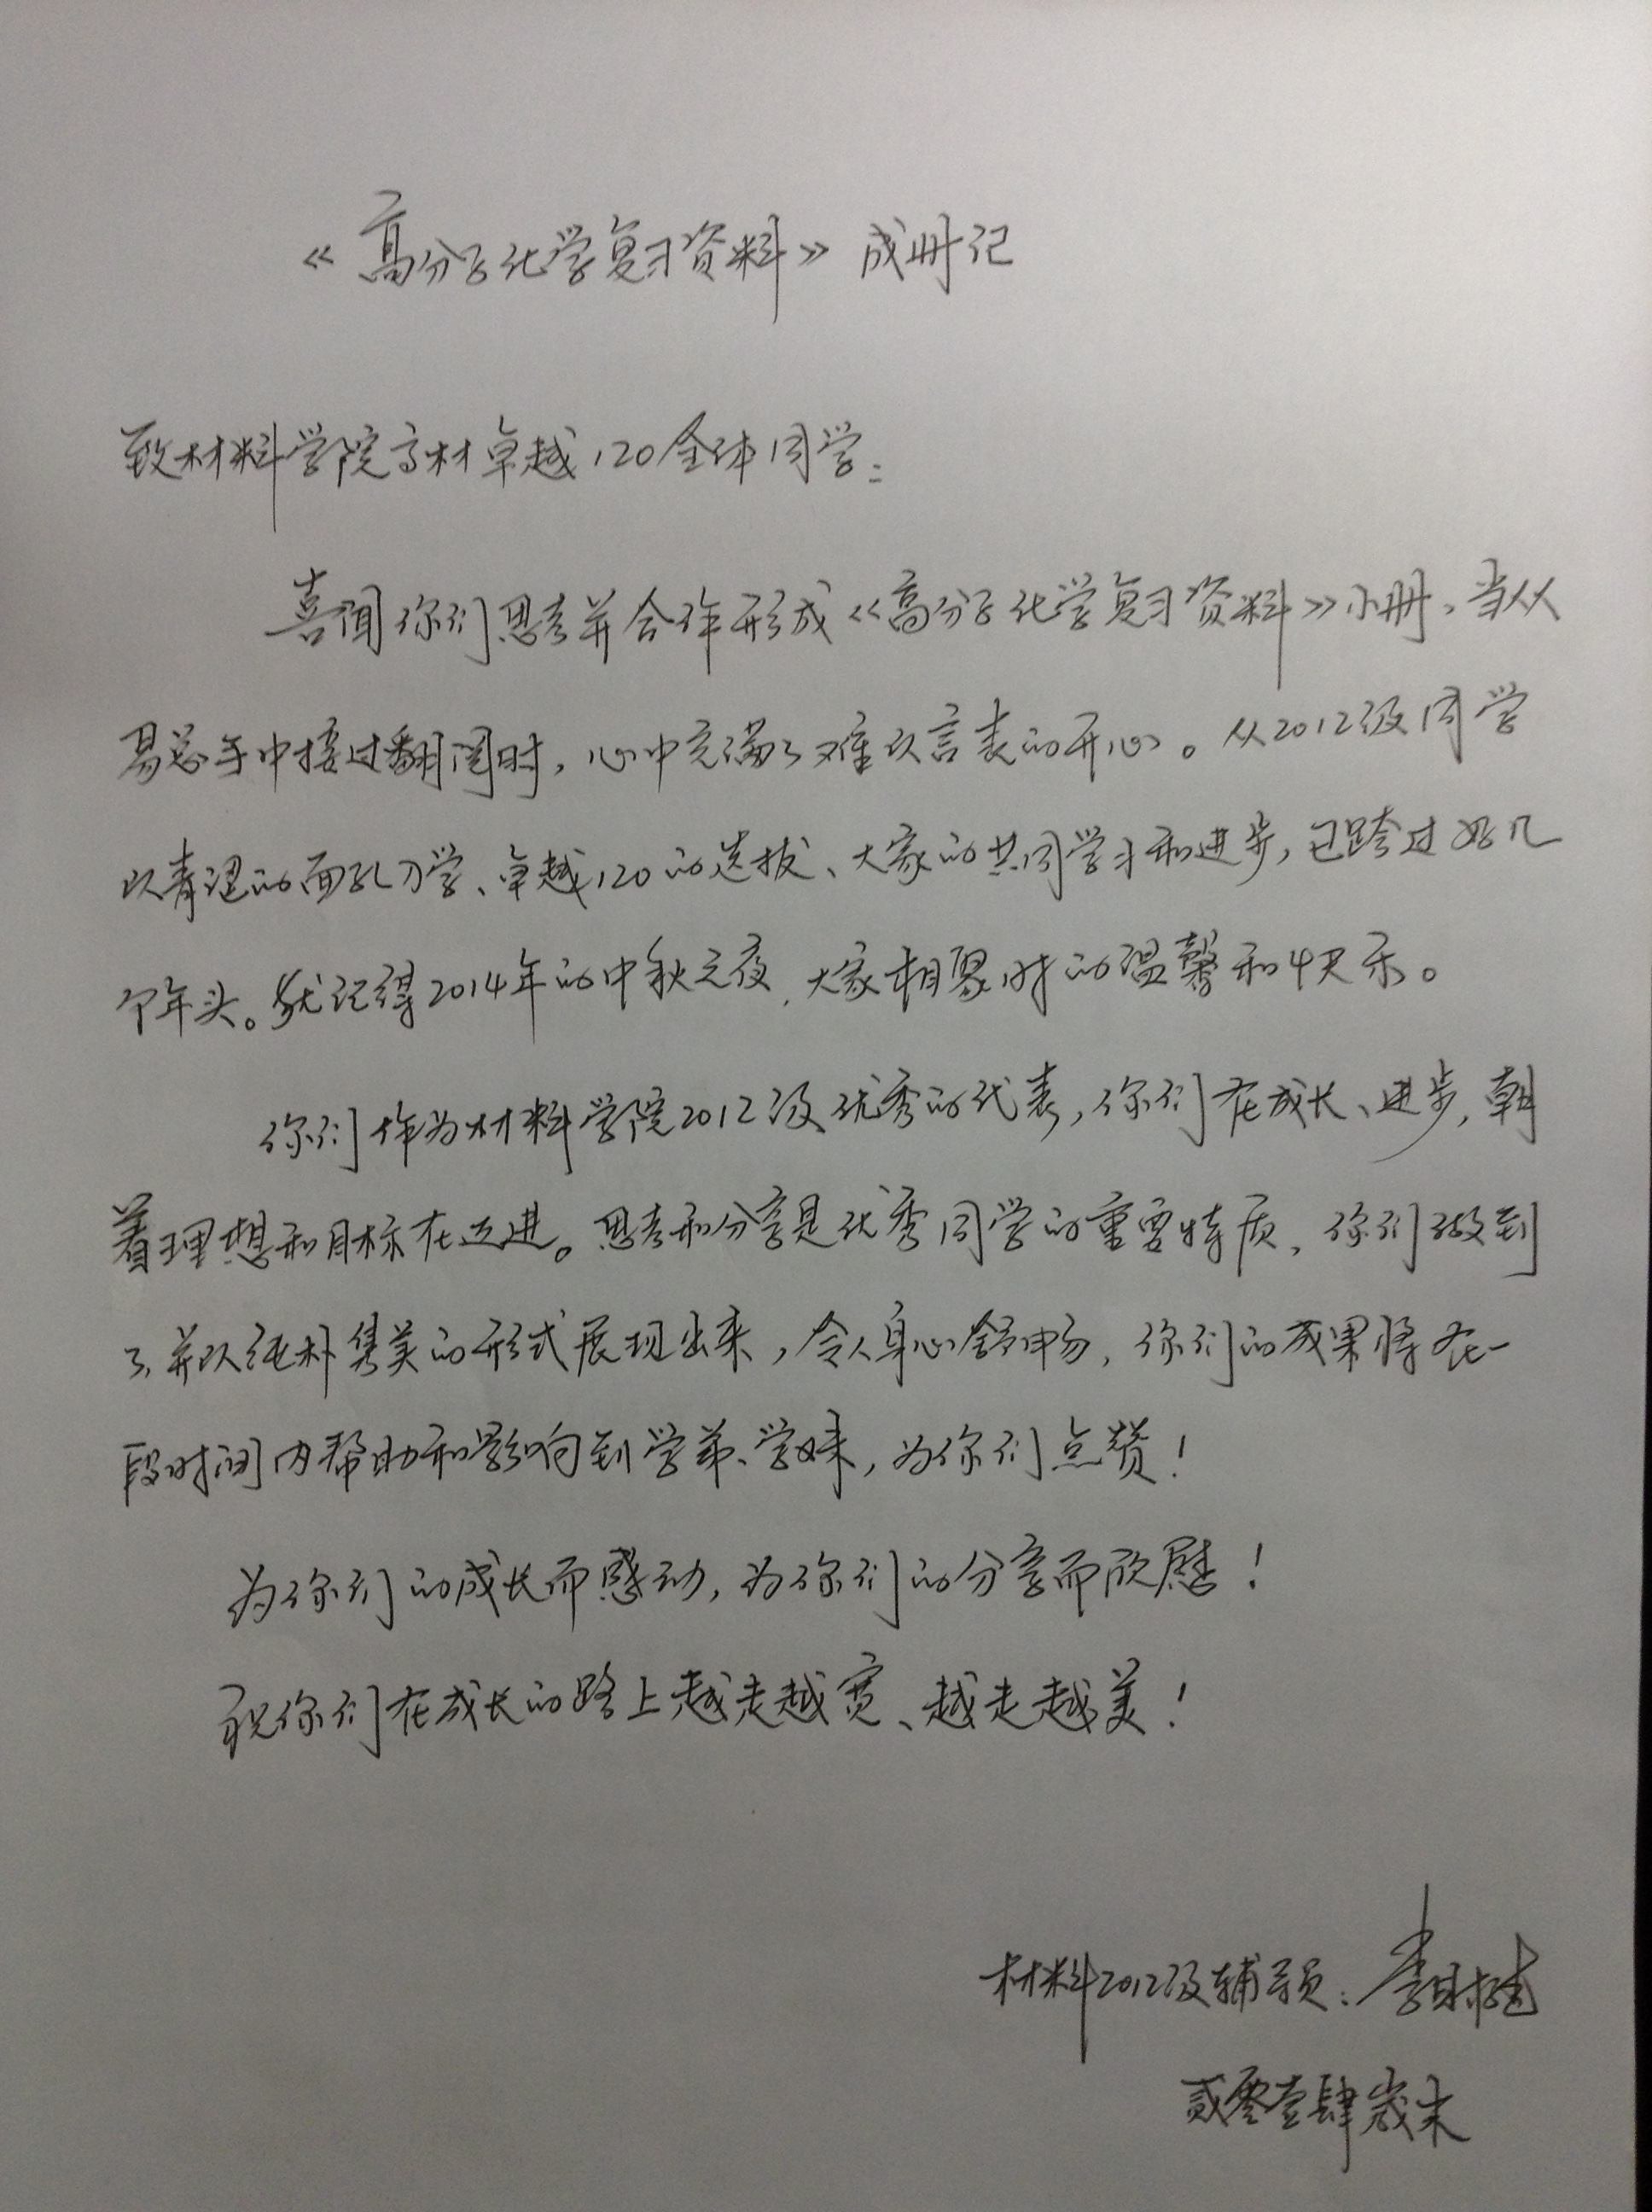 《高分子化学复习资料》成册记
致材料学院高材卓越120全体同学：
喜闻你们思考并合作形成《高分子化学复习资料》小册，当从
易总手中接过翻阅时，心中充满了难以言表的开心。从2012级同学
以青涩的面孔入学、卓越120的选拔、大家的共同学习和进步，已跨过好几
个年头。犹记得2014年的中秋之夜，大家相聚时的温馨和快乐。
你们作为材料学院2012级优秀的代表，你们在成长、进步，朝
着理想和目标在迈进。思考和分享是优秀同学的重要特质，你们做到
了，并以纯朴隽美的形式展现出来，令人身心舒畅，你们的成果将在一
段时间内帮助和影响到学弟、学妹，为你们点赞！
为你们的成长而感动，为你们的分享而欣慰！
祝你们在成长的路上越走越宽、越走越美！
材料2012级辅导员：李
贰零壹肆岁末